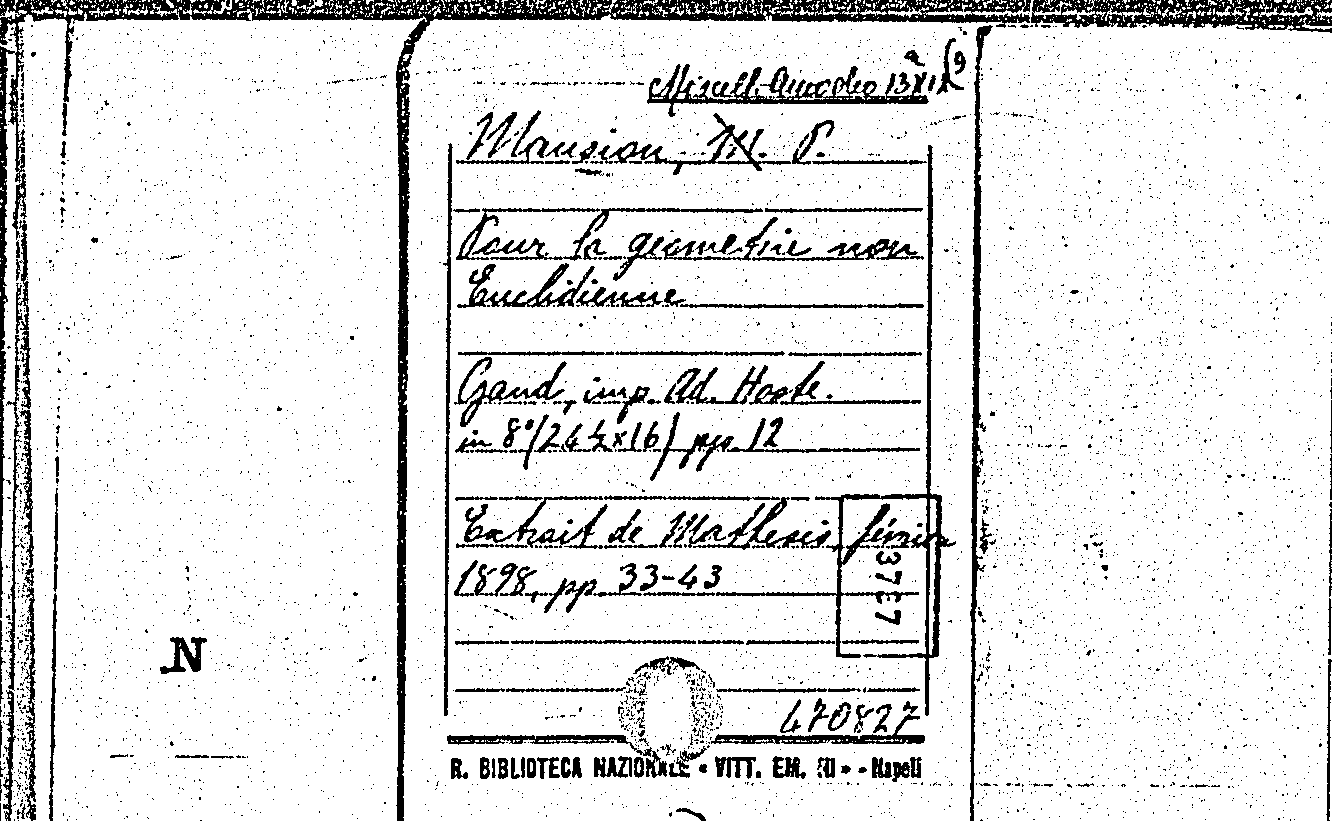 Miscell. Amodeo 13 XIX (9
Mansion, M. P.
Pour la geometrie non
Euclidienne
Gand, imp. Ad. Hoste.
in 8°(24 ½x16) pp. 12
Extrait de Mathesis, février
1898, pp. 33-43
3767
N
470827
R. BIBLIOTECA NAZIONALE « VITT. EM. III » - Napoli